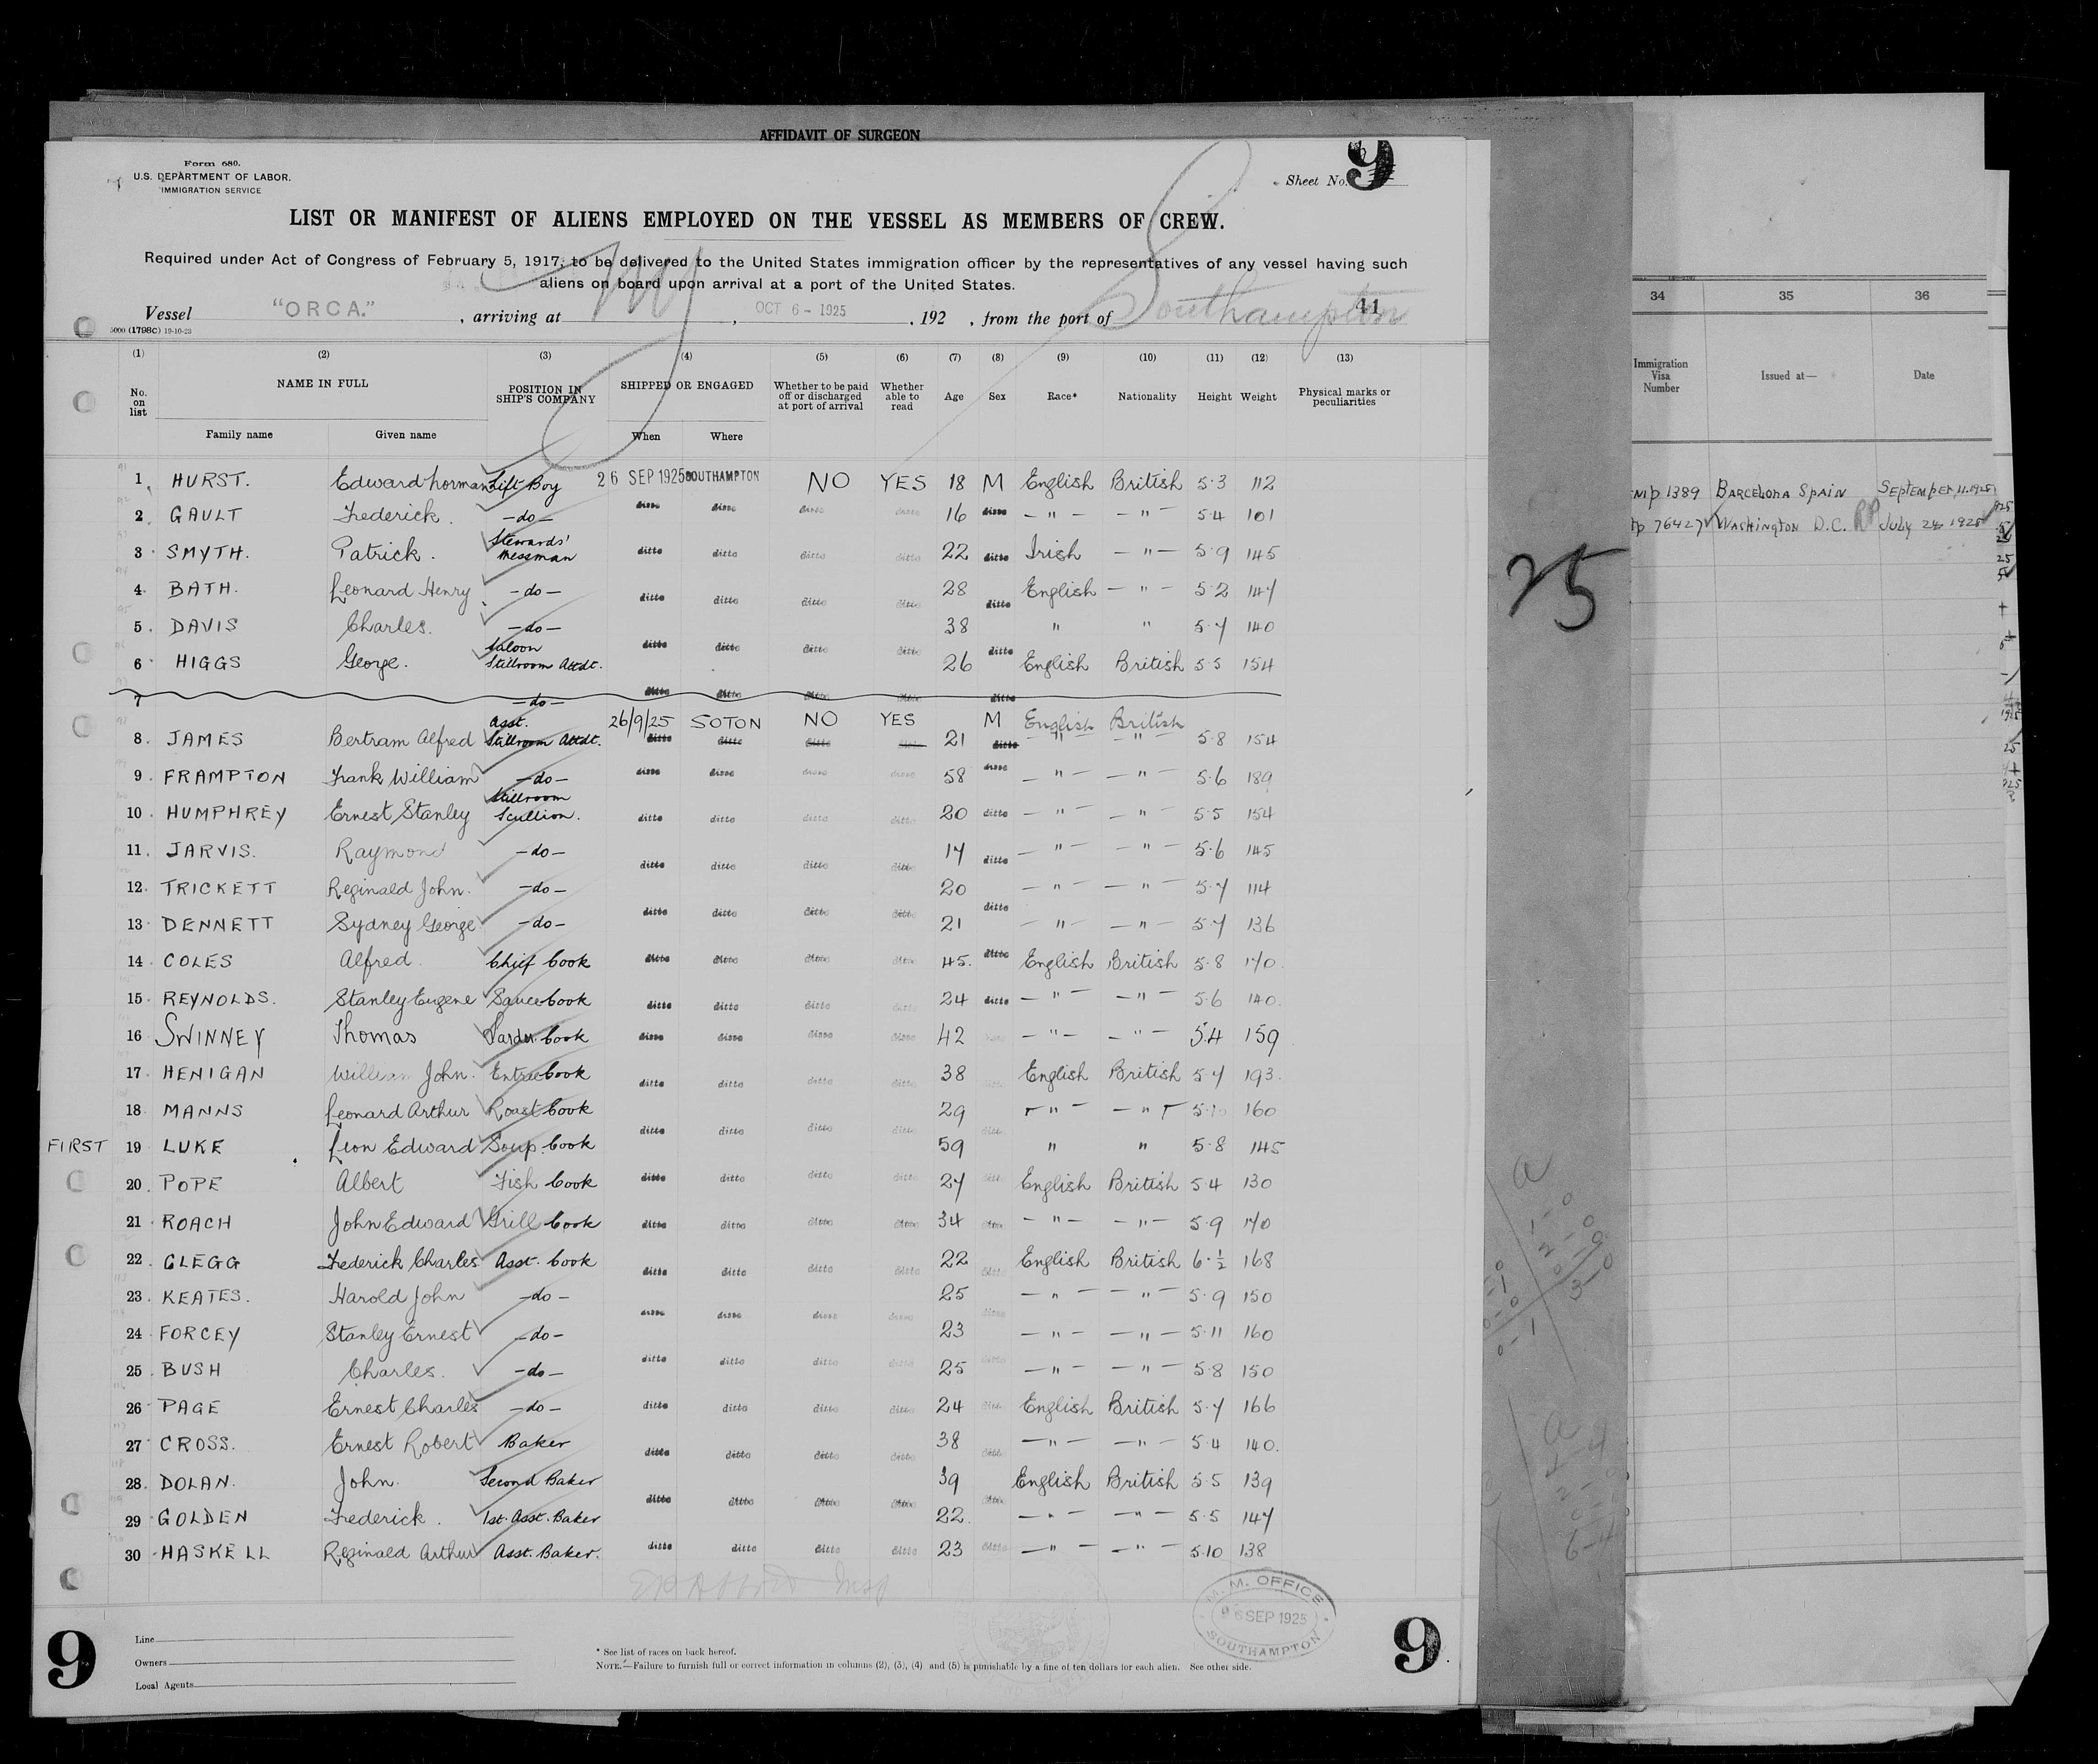 AFFIDAVIT OF SURGEON
Form 680.
U.S. DEPARTMENT OF LABOR.
IMMIGRATION SERVICE
Sheet No. 9
LIST OR MANIFEST OF ALIENS EMPLOYED ON THE VESSEL AS MEMBERS OF CREW.
Required under Act of Congress of February 5, 1917, to be delivered to the United States immigration officer by the representatives of any vessel having such
aliens on board upon arrival at a port of the United States.
Vessel "ORCA." , arriving at NY , OCT 6 - 1925 , 192 , from the port of Southampton 41
5000 (1798C) 19-10-23
(1) (2) (3) (4) (5) (6) (7) (8) (9) (10) (11) (12) (13)
No. on list NAME IN FULL POSITION IN SHIP'S COMPANY SHIPPED OR ENGAGED Whether to be paid off or discharged at port of arrival Whether able to read Age Sex Race* Nationality Height Weight Physical marks or peculiarities
Family name Given name When Where
1 HURST. Edward Norman Lift Boy 26 SEP 1925 SOUTHAMPTON NO YES 18 M English British 5·3 112
2 GAULT Frederick. -do- ditto ditto ditto ditto 16 ditto - " - - " - 5·4 101
3 SMYTH. Patrick. Stewards' Messman ditto ditto ditto ditto 22 ditto Irish - " - 5·9 145
4 BATH. Leonard Henry -do- ditto ditto ditto ditto 28 ditto English - " - 5·2 147
5 DAVIS Charles. -do- ditto ditto ditto ditto 38 ditto " " 5·7 140
6 HIGGS George. Saloon Stillroom Attdt. 26 English British 5·5 154
7 -do- ditto ditto ditto ditto ditto
8 JAMES Bertram Alfred Asst. Stillroom Attdt. 26/9/25 SOTON NO YES 21 M English British 5·8 154
ditto ditto ditto ditto ditto " - " -
9 FRAMPTON Frank William -do- ditto ditto ditto ditto 58 ditto - " - - " - 5·6 189
10 HUMPHREY Ernest Stanley Stillroom Scullion. ditto ditto ditto ditto 20 ditto - " - - " 5·5 154
11 JARVIS. Raymond -do- ditto ditto ditto ditto 17 ditto - " - - " - 5·6 145
12 TRICKETT Reginald John. -do- 20 - " - - " - 5·7 114
13 DENNETT Sydney George -do- ditto ditto ditto ditto 21 ditto - " - - " - 5·7 136
14 COLES Alfred. Chief Cook ditto ditto ditto ditto 45. ditto English British 5·8 170.
15 REYNOLDS. Stanley Eugene Sauce Cook ditto ditto ditto ditto 24 ditto - " - - " - 5·6 140.
16 SWINNEY Thomas Larder Cook ditto ditto ditto ditto 42 - " - - " - 5·4 159
17 HENIGAN William John. Entree Cook ditto ditto ditto ditto 38 English British 5·7 193.
18 MANNS Leonard Arthur Roast Cook 29 - " - - " - 5·10 160
FIRST 19 LUKE Leon Edward Soup. Cook ditto ditto ditto ditto 59 ditto " " 5·8 145
20 POPE Albert Fish Cook ditto ditto ditto ditto 27 ditto English British 5·4 130
21 ROACH John Edward Grill Cook ditto ditto ditto ditto 34 ditto - " - - " - 5·9 170
22 CLEGG Frederick Charles. Asst. Cook ditto ditto ditto ditto 22 ditto English British 6·½ 168
23 KEATES. Harold John -do- 25 - " - - " - 5·9 150
24 FORCEY Stanley Ernest -do- ditto ditto ditto ditto 23 ditto - " - - " - 5·11 160
25 BUSH Charles. -do- ditto ditto ditto ditto 25 ditto - " - - " - 5·8 150
26 PAGE Ernest Charles -do- ditto ditto ditto ditto 24 ditto English British 5·7 166
27 CROSS. Ernest Robert Baker ditto ditto ditto ditto 38 ditto - " - - " - 5·4 140.
28 DOLAN. John. Second Baker 39 English British 5·5 139
29 GOLDEN Frederick. 1st. Asst. Baker ditto ditto ditto ditto 22. ditto - " - - " - 5·5 147
30 HASKELL Reginald Arthur Asst. Baker. ditto ditto ditto ditto 23 ditto - " - - " - 5·10 138
M. M. OFFICE
26 SEP 1925
SOUTHAMPTON
9
Line
Owners
Local Agents
* See list of races on back hereof.
NOTE.—Failure to furnish full or correct information in columns (2), (3), (4) and (5) is punishable by a fine of ten dollars for each alien. See other side.
9
25
34 35 36
Immigration Visa Number Issued at— Date
1389 BARCELONA SPAIN SEPTEMBER 11. 1925
76427 WASHINGTON D.C. JULY 24 1925